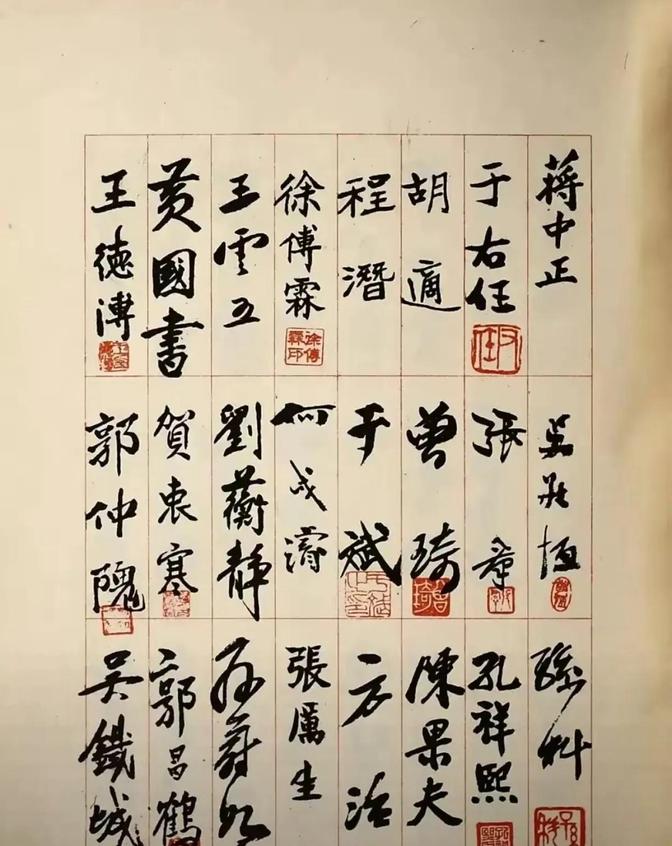 蔣中正
于右任
胡適
程潛
徐傅霖
徐傅霖印
王雲五
黃國書
王德溥
吳敬恒
張羣
曾琦
曾琦
于斌
何成濬
劉蘅靜
賀衷寒
郭仲隗
孫科
孔祥熙
陳果夫
方治
張厲生
孫蔚如
郭昌鶴
吳鐵城